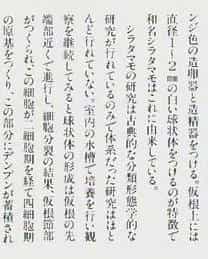 ンジ色の造卵器と造精器をつける。仮根上には
直径1－2㎜の白い球状体をつけるのが特徴で
和名シラタマモはこれに由来している。
シラタマモの研究は古典的な分類形態学的な
研究が行れているのみで体系だった研究はほと
んど行れていない。室内の水槽で培養を行い観
察を継続してみると球状体の形成は仮根の先
端部近くで進行し、細胞分裂の結果、仮根節部
がつくられ、この細胞が二細胞期を経て四細胞期
の原基をつくり、この部分にデンプンが蓄積され